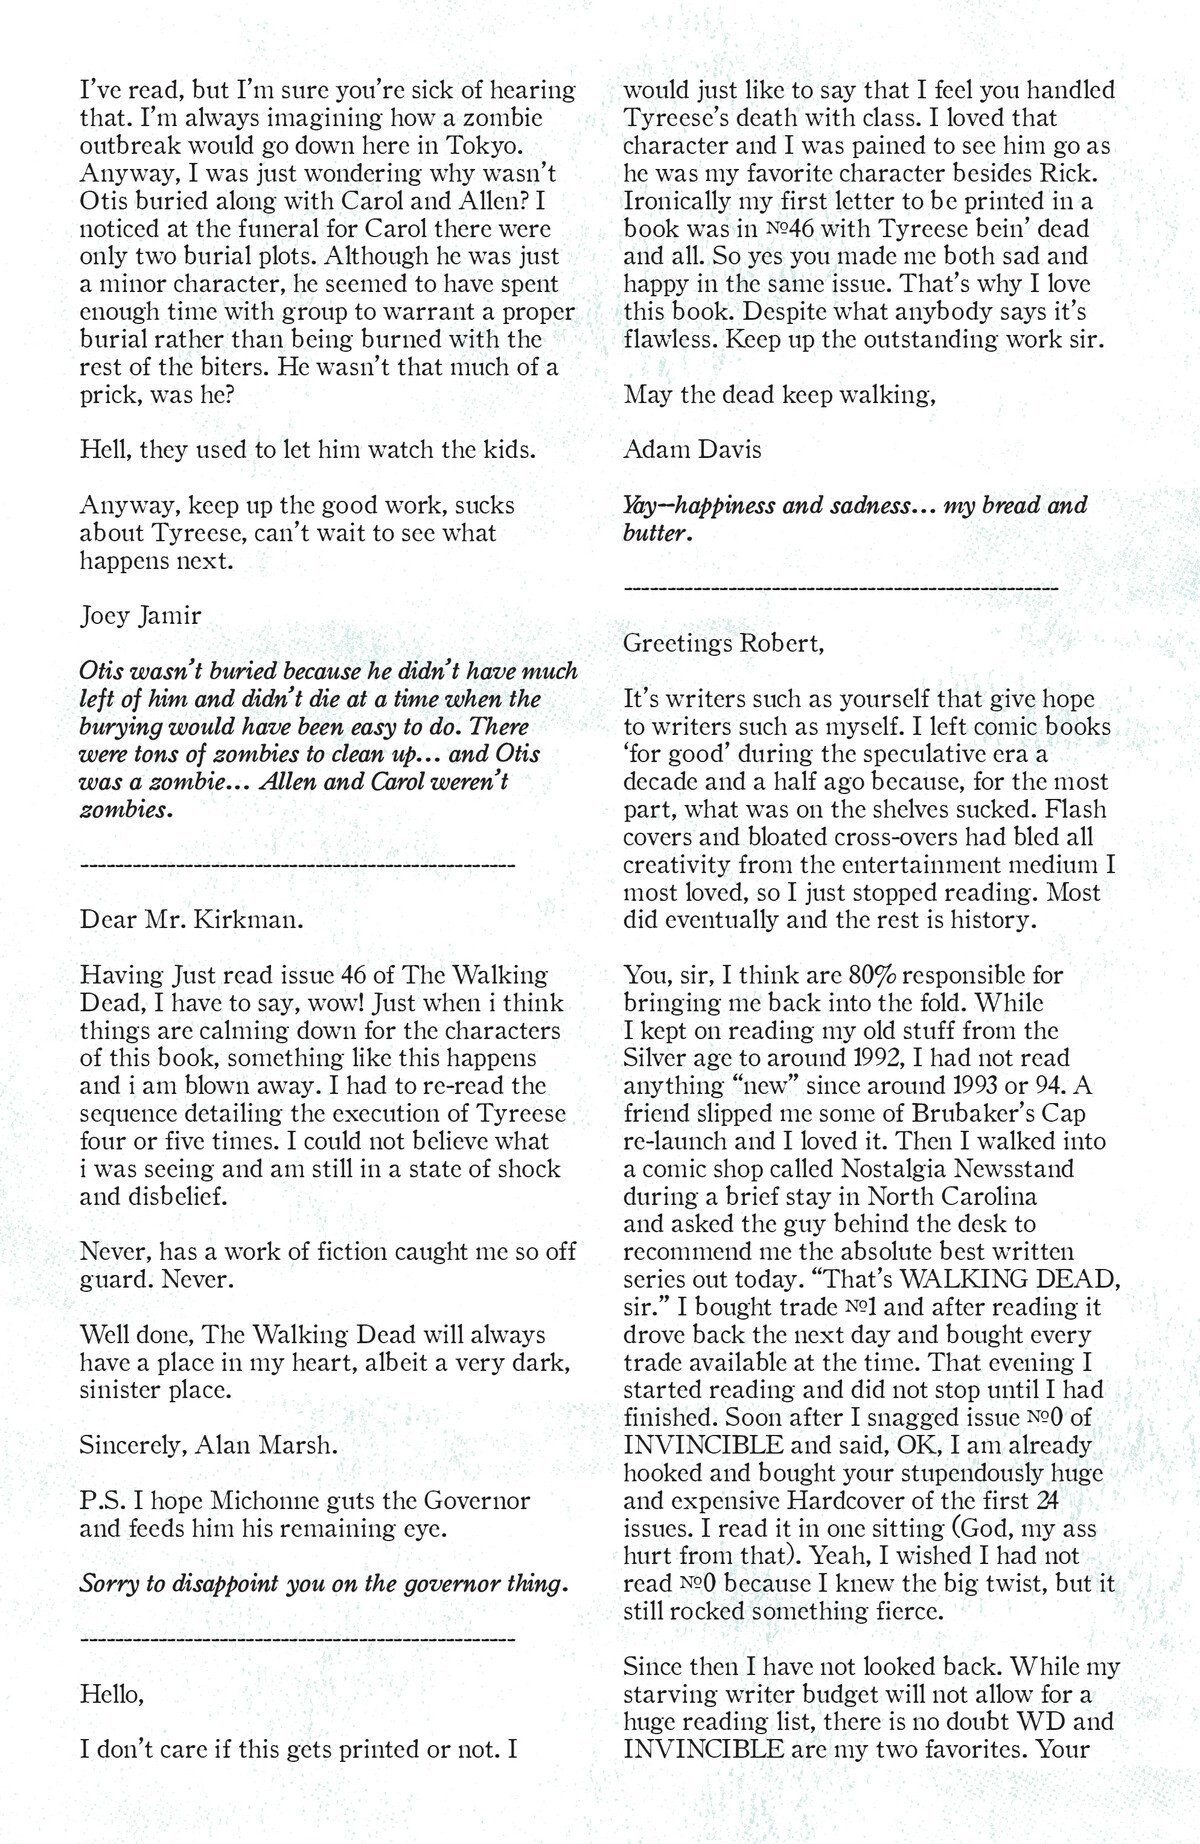 I've read, but I'm sure you're sick of hearing
that. I'm always imagining how a zombie
outbreak would go down here in Tokyo.
Anyway, I was just wondering why wasn't
Otis buried along with Carol and Allen? I
noticed at the funeral for Carol there were
only two burial plots. Although he was just
a minor character, he seemed to have spent
enough time with group to warrant a proper
burial rather than being burned with the
rest of the biters. He wasn't that much of a
prick, was he?
Hell, they used to let him watch the kids.
Anyway, keep up the good work, sucks
about Tyreese, can't wait to see what
happens next.
Joey Jamir
Otis wasn't buried because he didn't have much
left of him and didn't die at a time when the
burying would have been easy to do. There
were tons of zombies to clean up... and Otis
was a zombie... Allen and Carol weren't
zombies.
--------------------------------------------------
Dear Mr. Kirkman.
Having Just read issue 46 of The Walking
Dead, I have to say, wow! Just when i think
things are calming down for the characters
of this book, something like this happens
and i am blown away. I had to re-read the
sequence detailing the execution of Tyreese
four or five times. I could not believe what
i was seeing and am still in a state of shock
and disbelief.
Never, has a work of fiction caught me so off
guard. Never.
Well done, The Walking Dead will always
have a place in my heart, albeit a very dark,
sinister place.
Sincerely, Alan Marsh.
P.S. I hope Michonne guts the Governor
and feeds him his remaining eye.
Sorry to disappoint you on the governor thing.
--------------------------------------------------
Hello,
I don't care if this gets printed or not. I
would just like to say that I feel you handled
Tyreese's death with class. I loved that
character and I was pained to see him go as
he was my favorite character besides Rick.
Ironically my first letter to be printed in a
book was in №46 with Tyreese bein' dead
and all. So yes you made me both sad and
happy in the same issue. That's why I love
this book. Despite what anybody says it's
flawless. Keep up the outstanding work sir.
May the dead keep walking,
Adam Davis
Yay--happiness and sadness... my bread and
butter.
--------------------------------------------------
Greetings Robert,
It's writers such as yourself that give hope
to writers such as myself. I left comic books
'for good' during the speculative era a
decade and a half ago because, for the most
part, what was on the shelves sucked. Flash
covers and bloated cross-overs had bled all
creativity from the entertainment medium I
most loved, so I just stopped reading. Most
did eventually and the rest is history.
You, sir, I think are 80% responsible for
bringing me back into the fold. While
I kept on reading my old stuff from the
Silver age to around 1992, I had not read
anything "new" since around 1993 or 94. A
friend slipped me some of Brubaker's Cap
re-launch and I loved it. Then I walked into
a comic shop called Nostalgia Newsstand
during a brief stay in North Carolina
and asked the guy behind the desk to
recommend me the absolute best written
series out today. "That's WALKING DEAD,
sir." I bought trade №1 and after reading it
drove back the next day and bought every
trade available at the time. That evening I
started reading and did not stop until I had
finished. Soon after I snagged issue №0 of
INVINCIBLE and said, OK, I am already
hooked and bought your stupendously huge
and expensive Hardcover of the first 24
issues. I read it in one sitting (God, my ass
hurt from that). Yeah, I wished I had not
read №0 because I knew the big twist, but it
still rocked something fierce.
Since then I have not looked back. While my
starving writer budget will not allow for a
huge reading list, there is no doubt WD and
INVINCIBLE are my two favorites. Your